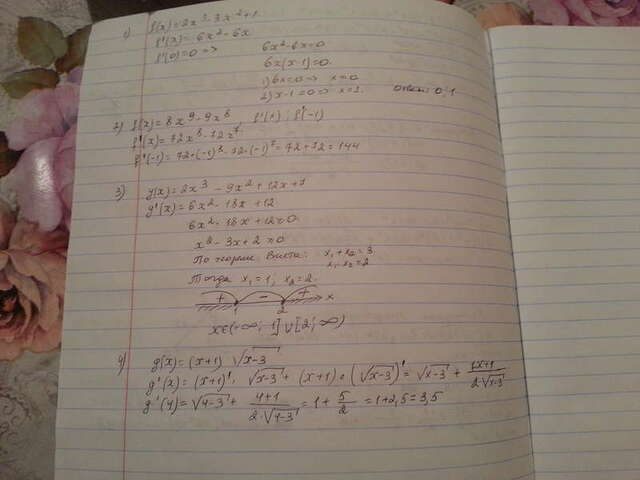 1) f(x)=2x³-3x²+1
f'(x)=6x²-6x
f'(0)=0 =>
6x²-6x=0
6x(x-1)=0
1) 6x=0 => x=0
2) x-1=0 => x=1.
ответ: 0;1
2) f(x)=8x⁹-9x⁸ f'(1); f'(-1)
f'(x)=72x⁸-72x⁷
f'(-1)=72·(-1)⁸-72·(-1)⁷=72+72=144
3) g(x)=2x³-9x²+12x+1
g'(x)=6x²-18x+12
6x²-18x+12=0
x²-3x+2=0
По теореме Виета: x₁+x₂=3
x₁·x₂=2
Тогда x₁=1, x₂=2
+ - + x
x∈(-∞;1]∪[2;∞)
4) g(x)=(x+1)√x-3
g'(x)=(x+1)'·√x-3+(x+1)·(√x-3)'=√x-3+ x+1 / 2√x-3
g'(4)=√4-3+ 4+1 / 2√4-3 =1+5/2=1+2,5=3,5